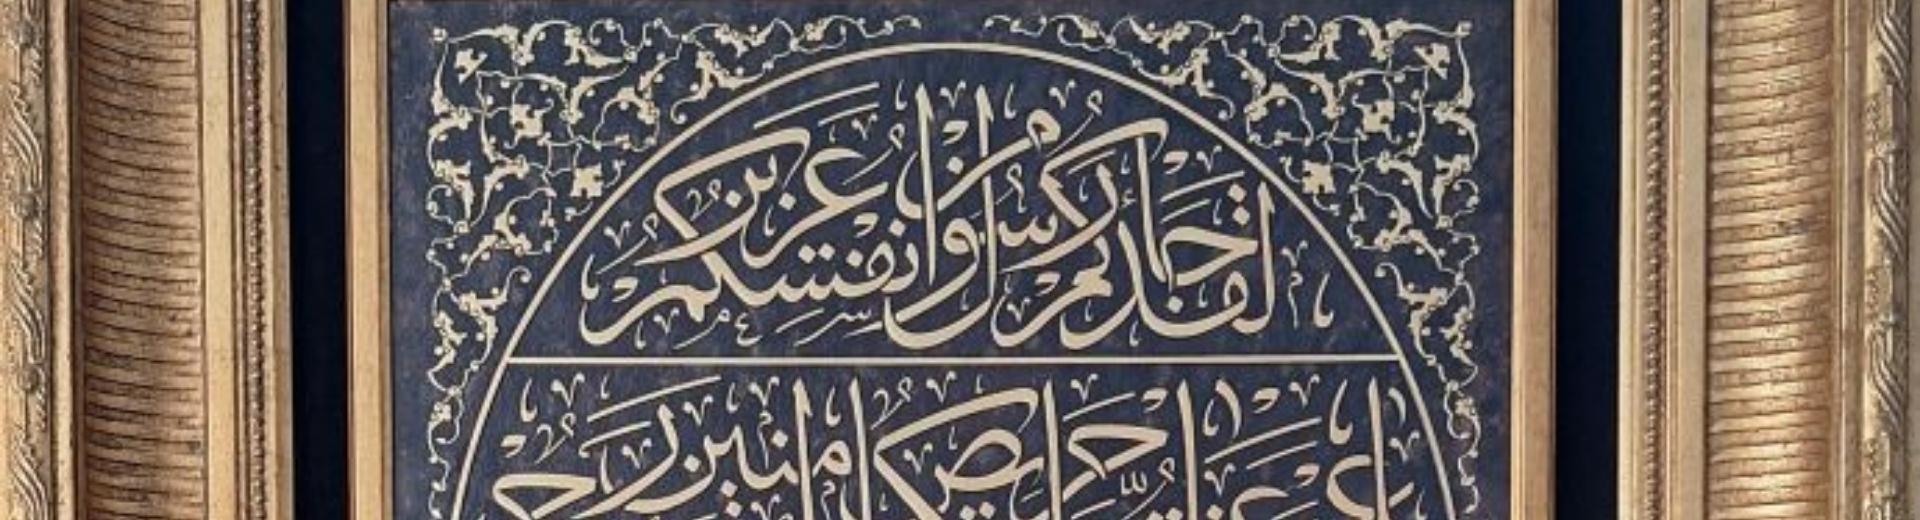 لقد جاءكم رسول من انفسكم عزيز
عليه ما عنتم حريص عليكم بالمؤمنين